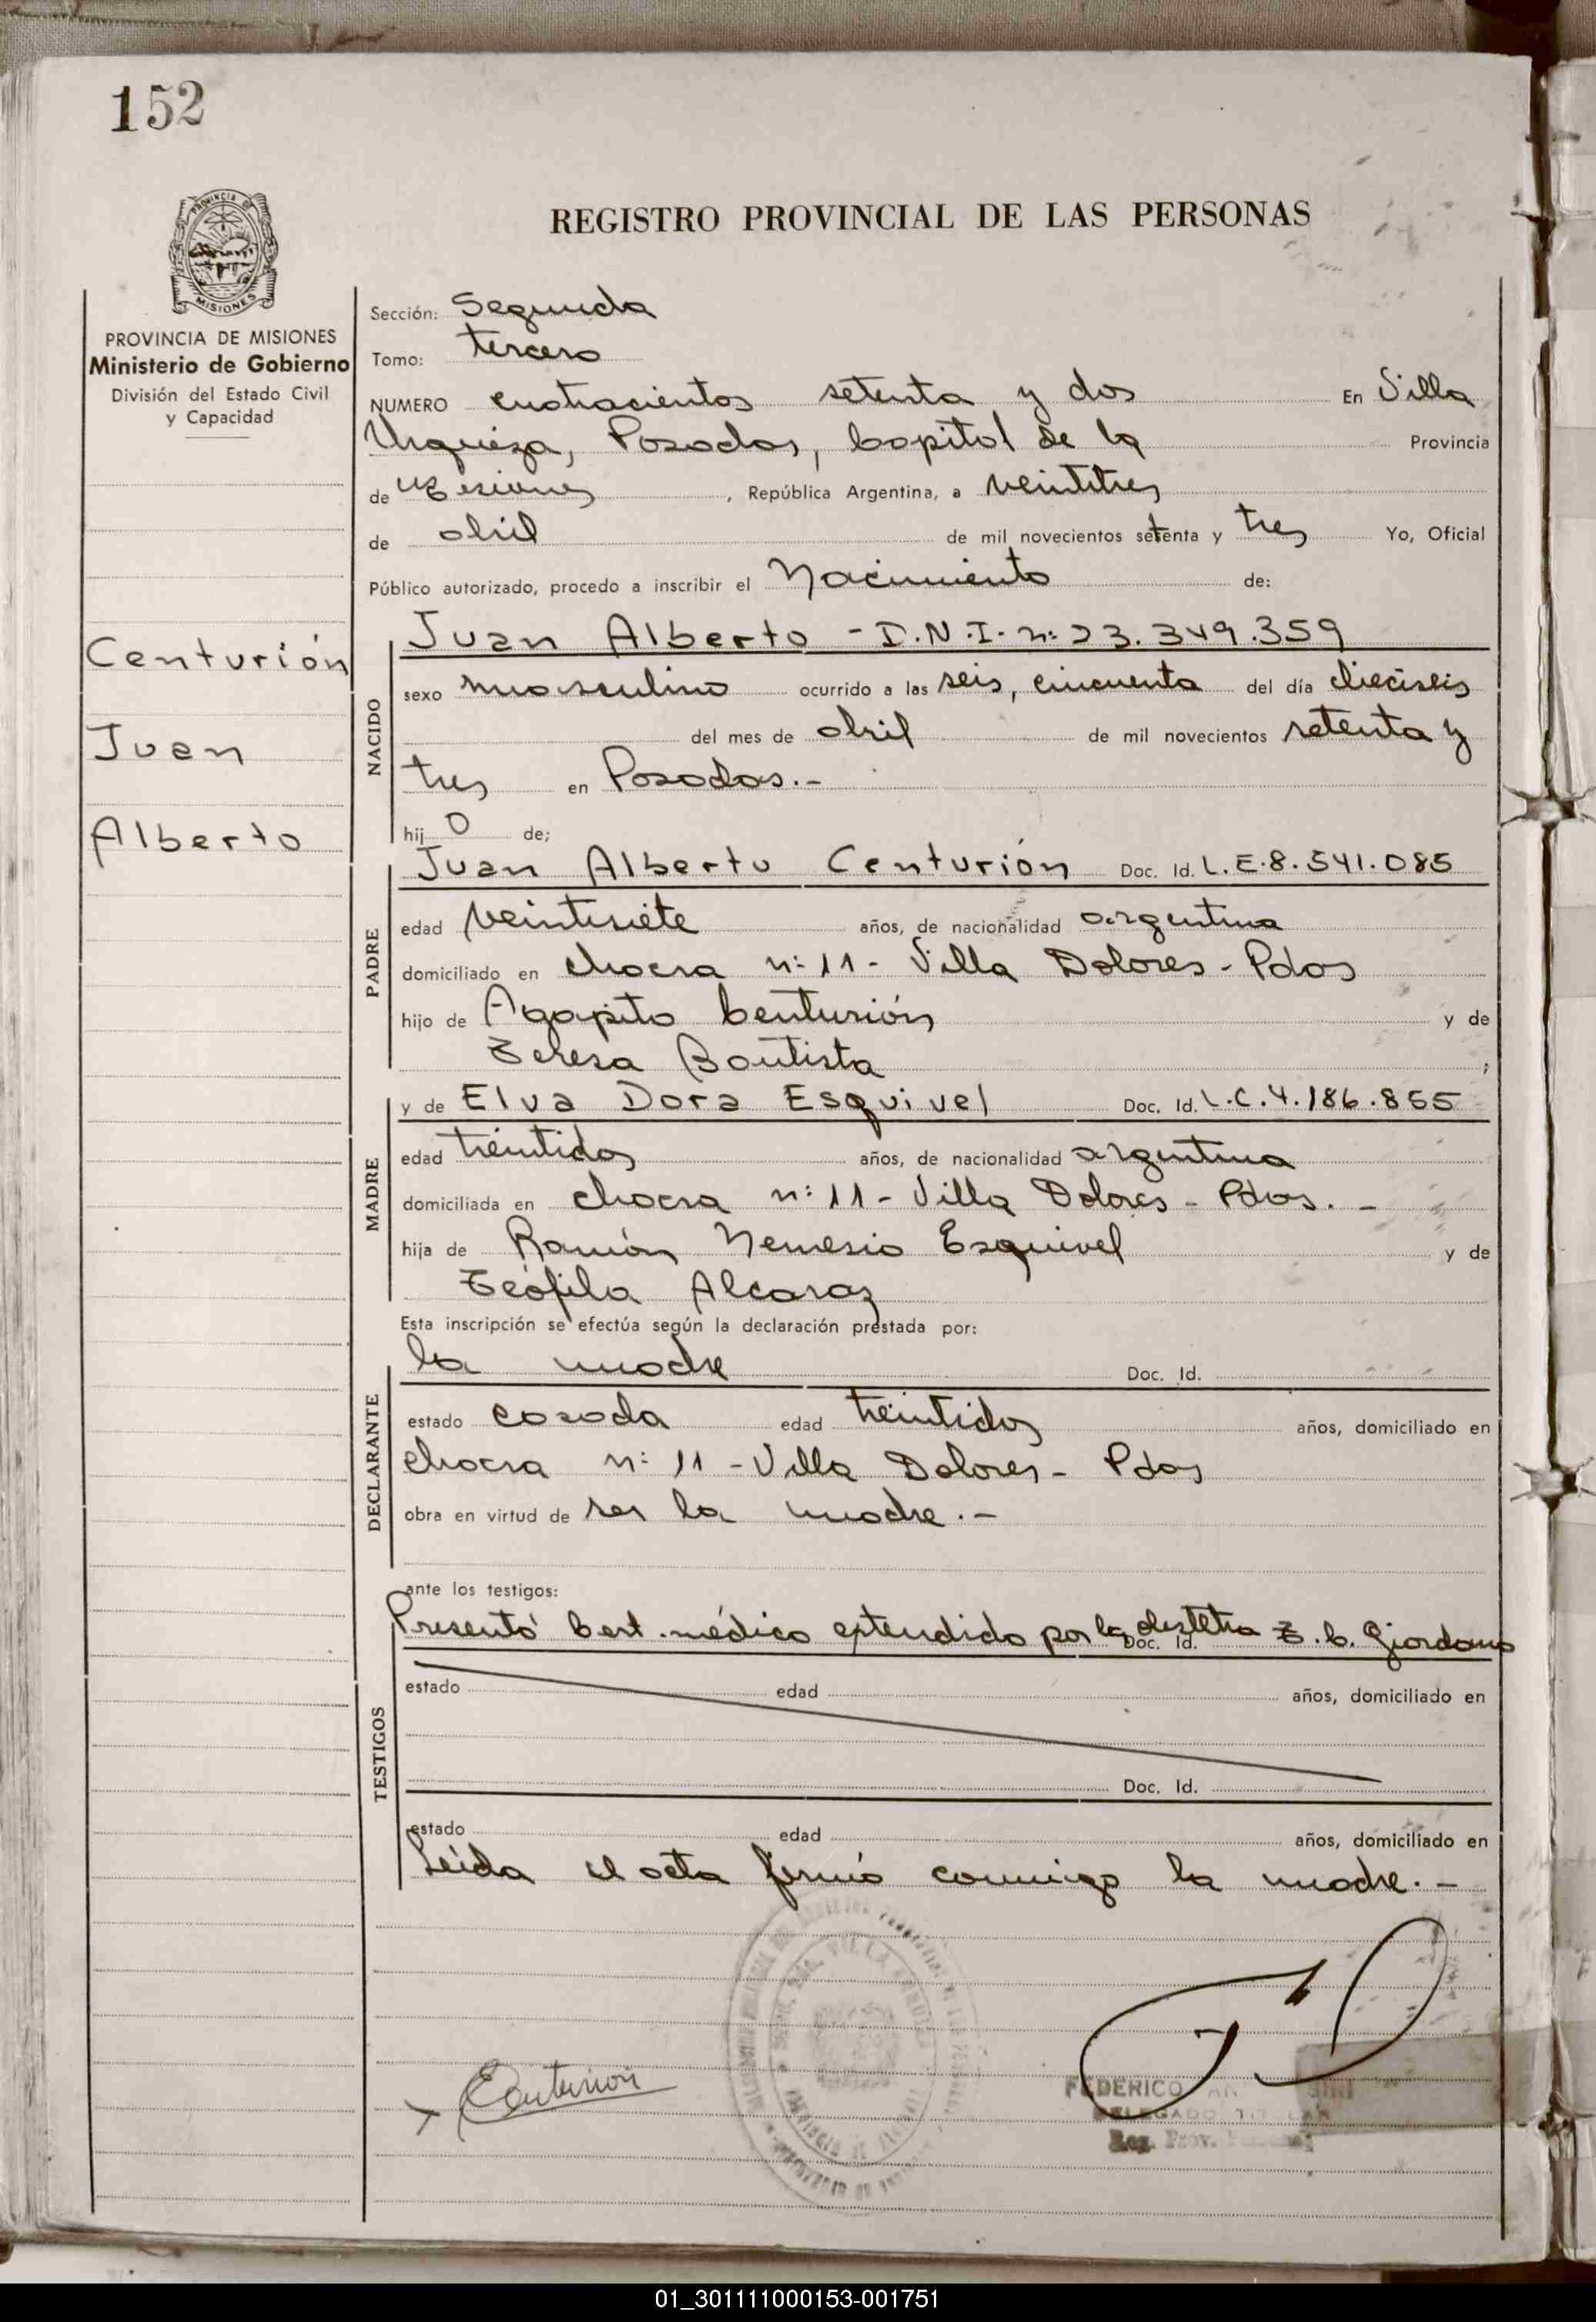 152
REGISTRO PROVINCIAL DE LAS PERSONAS
PROVINCIA DE
MISIONES
PROVINCIA DE MISIONES
Ministerio de Gobierno
División del Estado Civil
y Capacidad
Centurión
Juan
Alberto
Sección: Segunda
Tomo: tercero
NUMERO cuatrocientos setenta y dos En Villa
Urquiza, Posadas, Capital de la Provincia
de Misiones, República Argentina, a veintitres
de abril de mil novecientos setenta y tres Yo, Oficial
Público autorizado, procedo a inscribir el Nacimiento de:
NACIDO
Juan Alberto - D.N.I. nº 23.349.359
sexo masculino ocurrido a las seis, cincuenta del día dieciseis
del mes de abril de mil novecientos setenta y
tres en Posadas.-
hij o de;
PADRE
Juan Alberto Centurión Doc. Id. L.E. 8.541.085
edad veintisiete años, de nacionalidad argentina
domiciliado en chacra nº 11 - Villa Dolores - Pdas
hijo de Agapito Centurión y de
Teresa Bautista ;
MADRE
y de Elva Dora Esquivel Doc. Id. L.C. 4.186.855
edad treintidos años, de nacionalidad argentina
domiciliada en chacra nº 11 - Villa Dolores - Pdas. -
hija de Ramón Nemesio Esquivel y de
Teófila Alcaraz
Esta inscripción se efectúa según la declaración prestada por:
DECLARANTE
la madre Doc. Id.
estado casada edad treintidos años, domiciliado en
chacra nº 11 - Villa Dolores - Pdas
obra en virtud de ser la madre.-
ante los testigos:
TESTIGOS
Presentó Cert. médico extendido por la obstetra T. C. Giordano
Doc. Id.
estado edad años, domiciliado en
Doc. Id.
estado edad años, domiciliado en
Leída el acta firmó conmigo la madre.-
Centurion
FEDERICO
DELEGADO TITULAR
Reg. Prov.
01_301111000153-001751